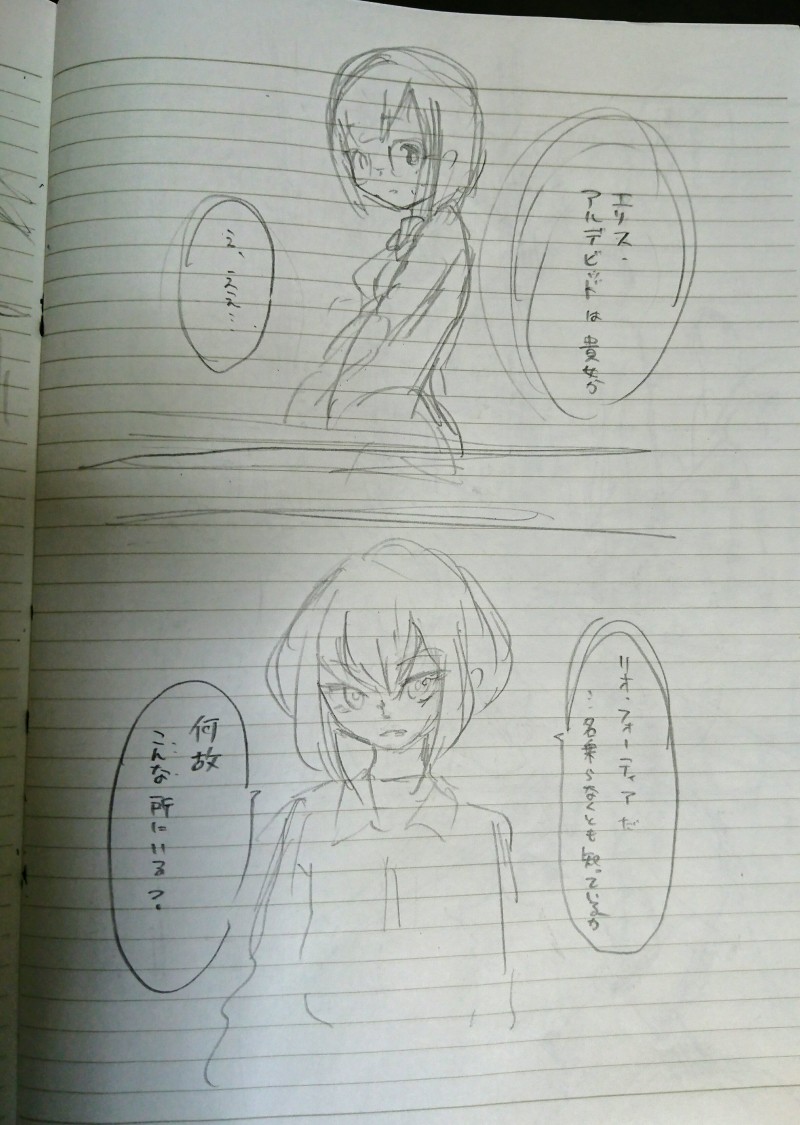 エリス・
アルデビットは貴女か
え、ええ…
リオ・フォーティアだ
…名乗らなくとも知っているか
何故
こんな所にいる？